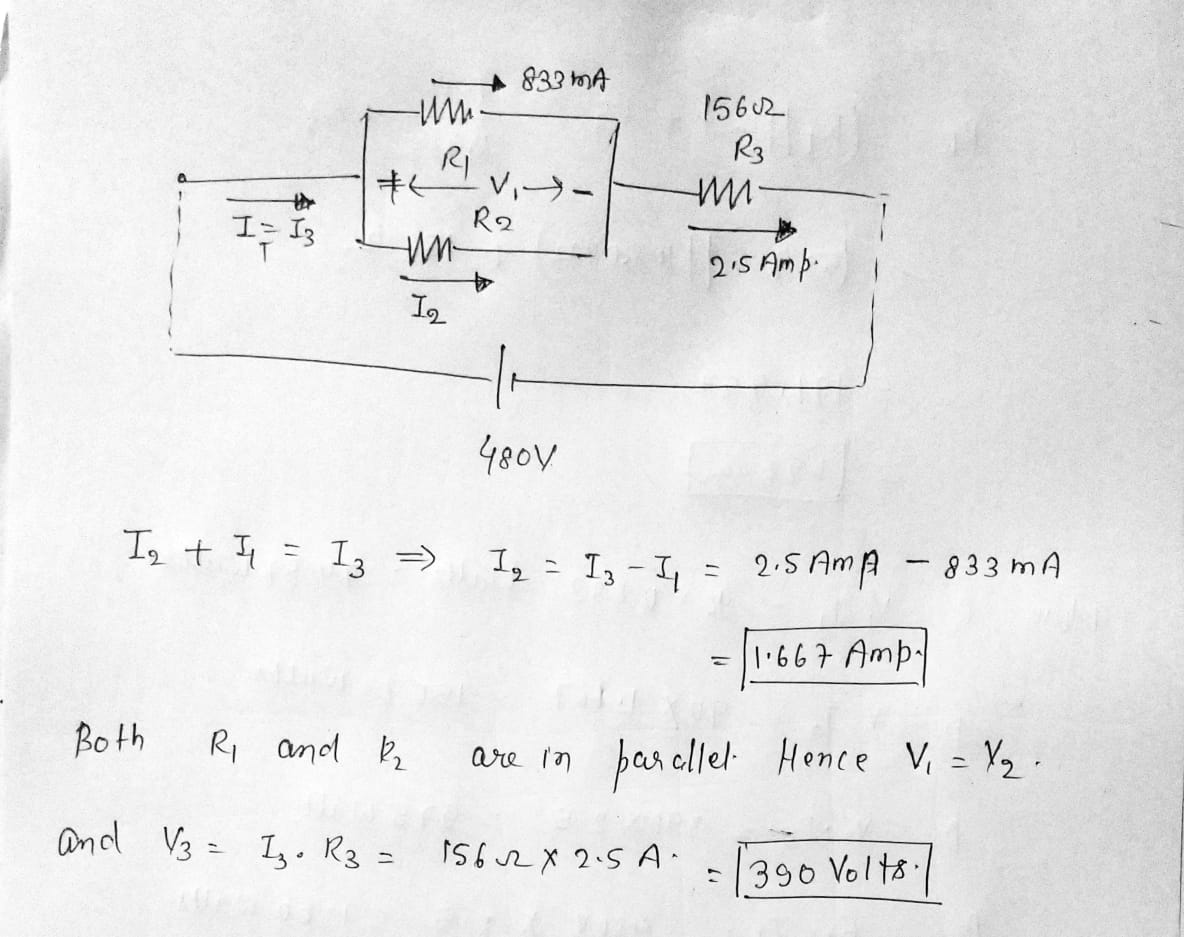 833 mA
156Ω
R3
R1
+ ← V1 → -
R2
I_T = I3
2.5 Amp.
I2
480V
I2 + I1 = I3 ⇒ I2 = I3 - I1 = 2.5 Amp - 833 mA
= 1.667 Amp.
Both R1 and R2 are in parallel. Hence V1 = V2.
and V3 = I3. R3 = 156Ω x 2.5 A. = 390 Volts.